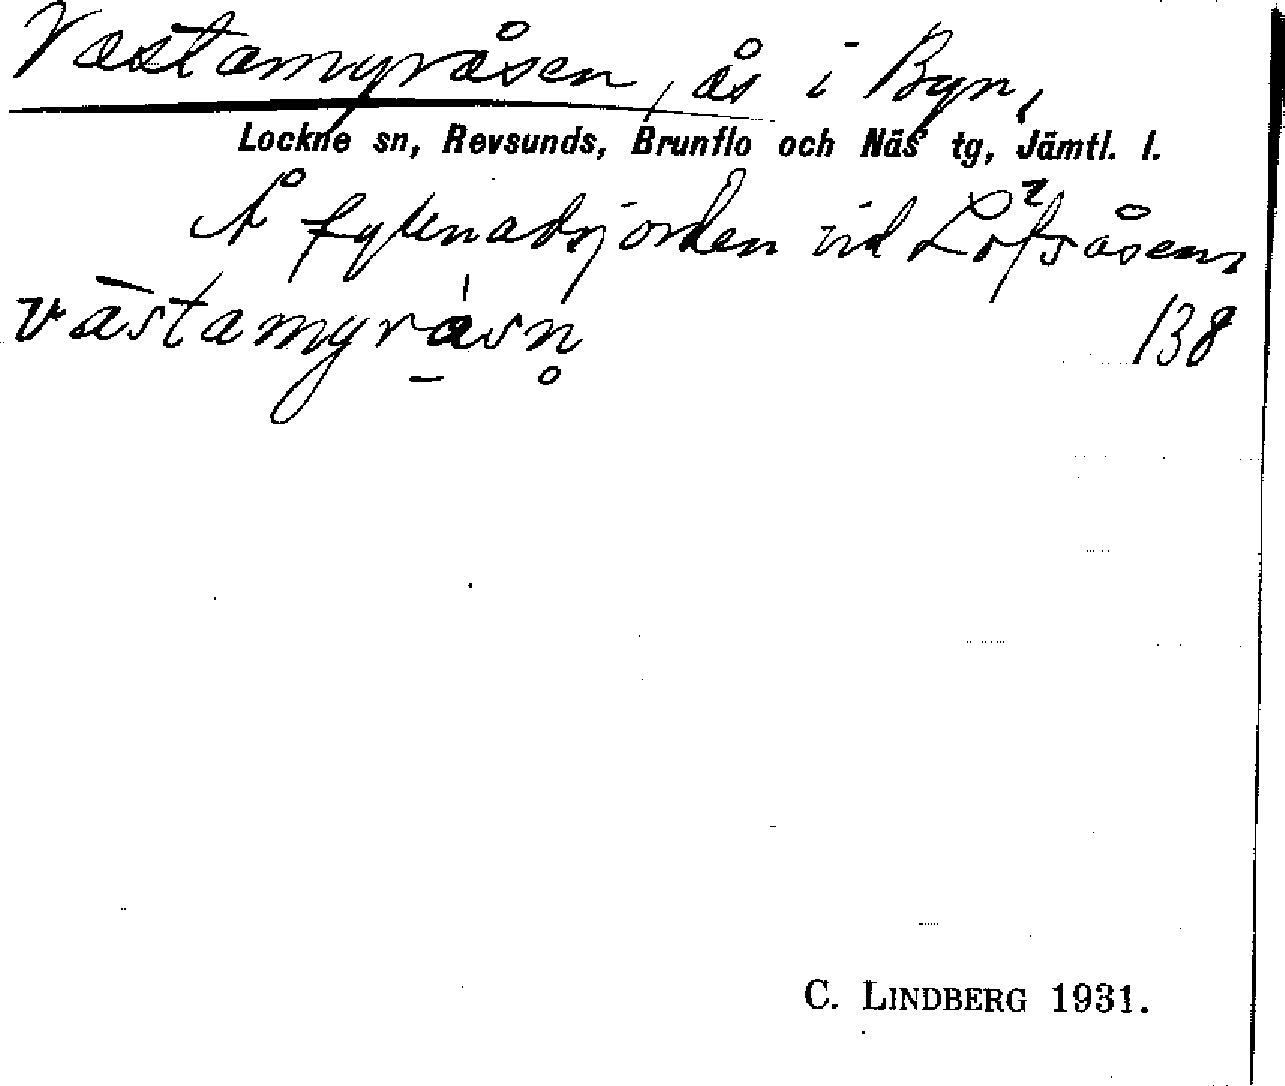 Västamyråsen, ås i Byn,
Lockne sn, Revsunds, Brunflo och Näs tg, Jämtl. l.
Å vid
västamyråsn̥
138
C. LINDBERG 1931.